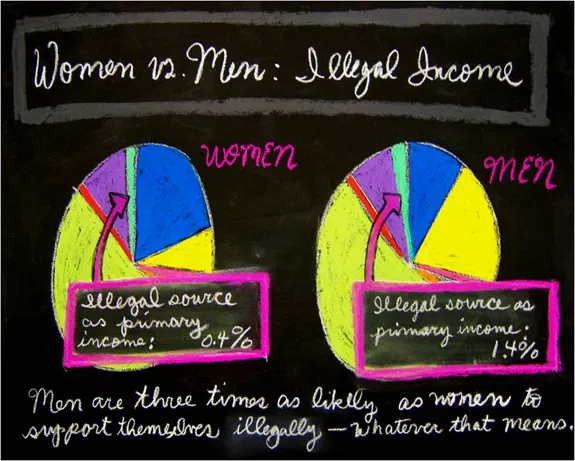 Women vs. Men: Illegal Income
WOMEN
MEN
Illegal source
as primary
income: 0.4%
Illegal source as
primary income:
1.4%
Men are three times as likely as women to
support themselves illegally — whatever that means.